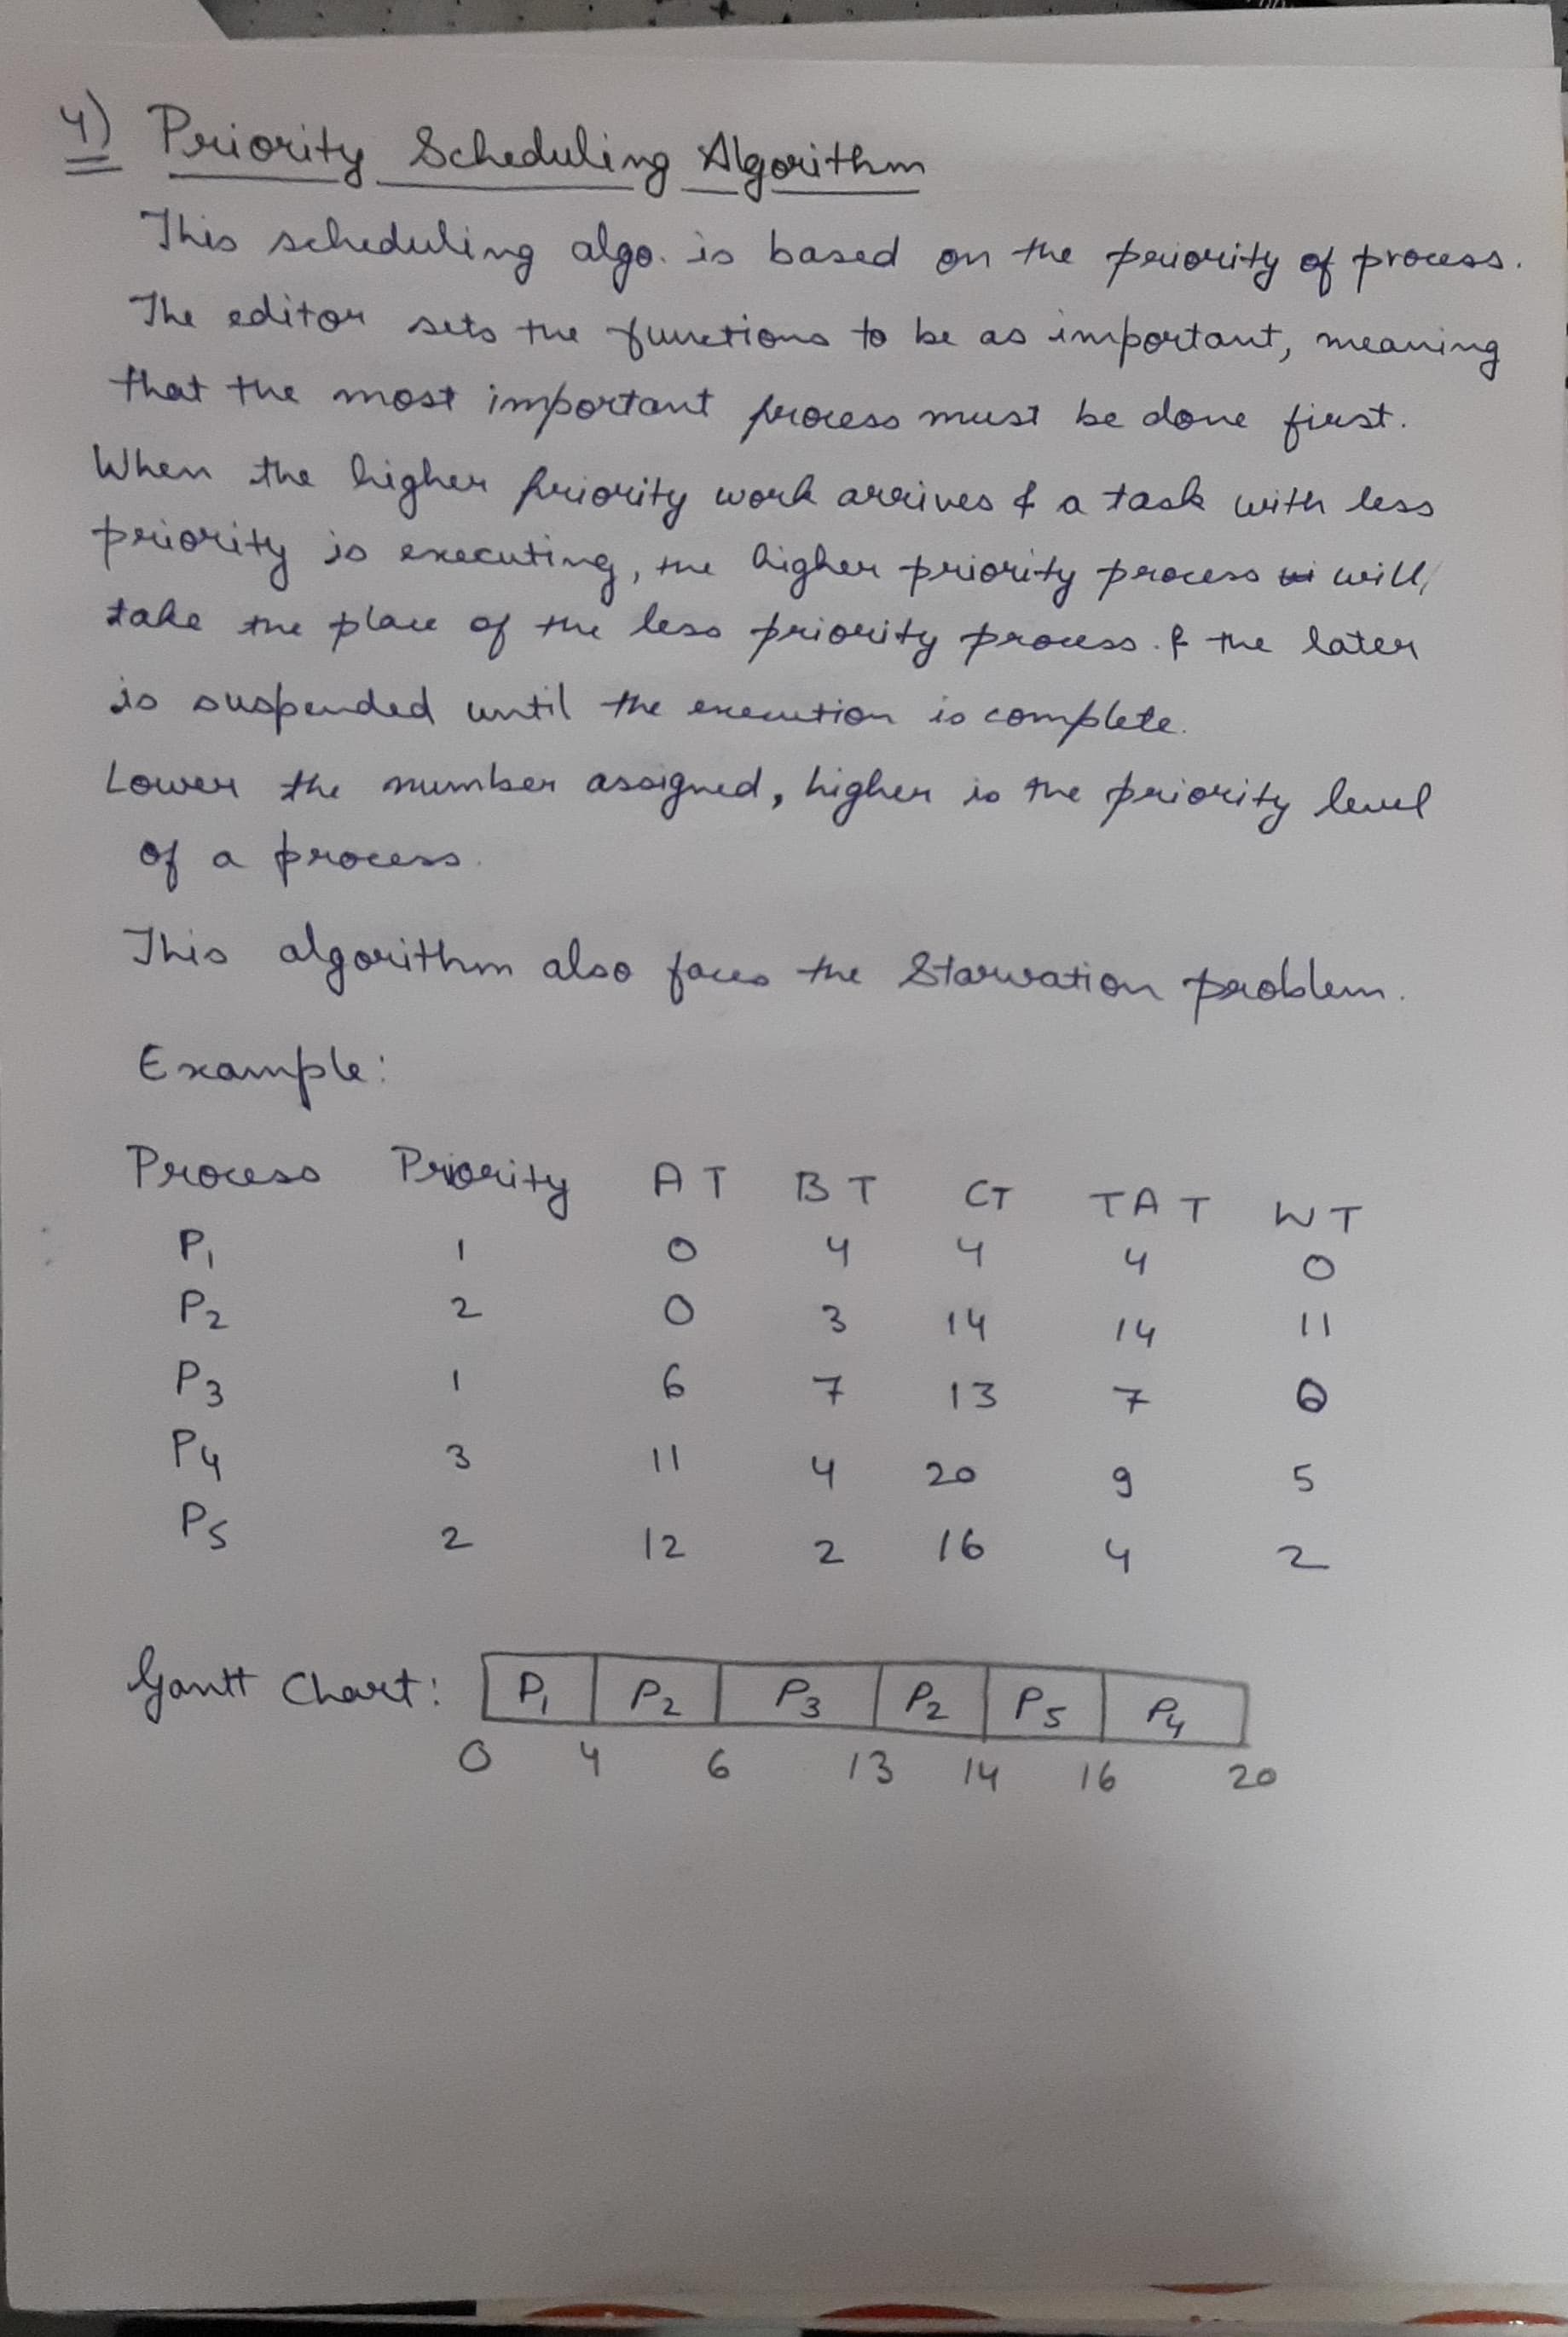 4) Priority Scheduling Algorithm
This scheduling algo. is based on the priority of process.
The editor sets the functions to be as important, meaning
that the most important process must be done first.
When the higher priority work arrives & a task with less
priority is executing, the higher priority process will
take the place of the less priority process. & the later
is suspended until the execution is complete.
Lower the number assigned, higher is the priority level
of a process.
This algorithm also faces the Starvation problem.
Example:
Process Priority AT BT CT TAT WT
P1 1 0 4 4 4 0
P2 2 0 3 14 14 11
P3 1 6 7 13 7 0
P4 3 11 4 20 9 5
P5 2 12 2 16 4 2
Gantt Chart: P1 P2 P3 P2 P5 P4
0 4 6 13 14 16 20